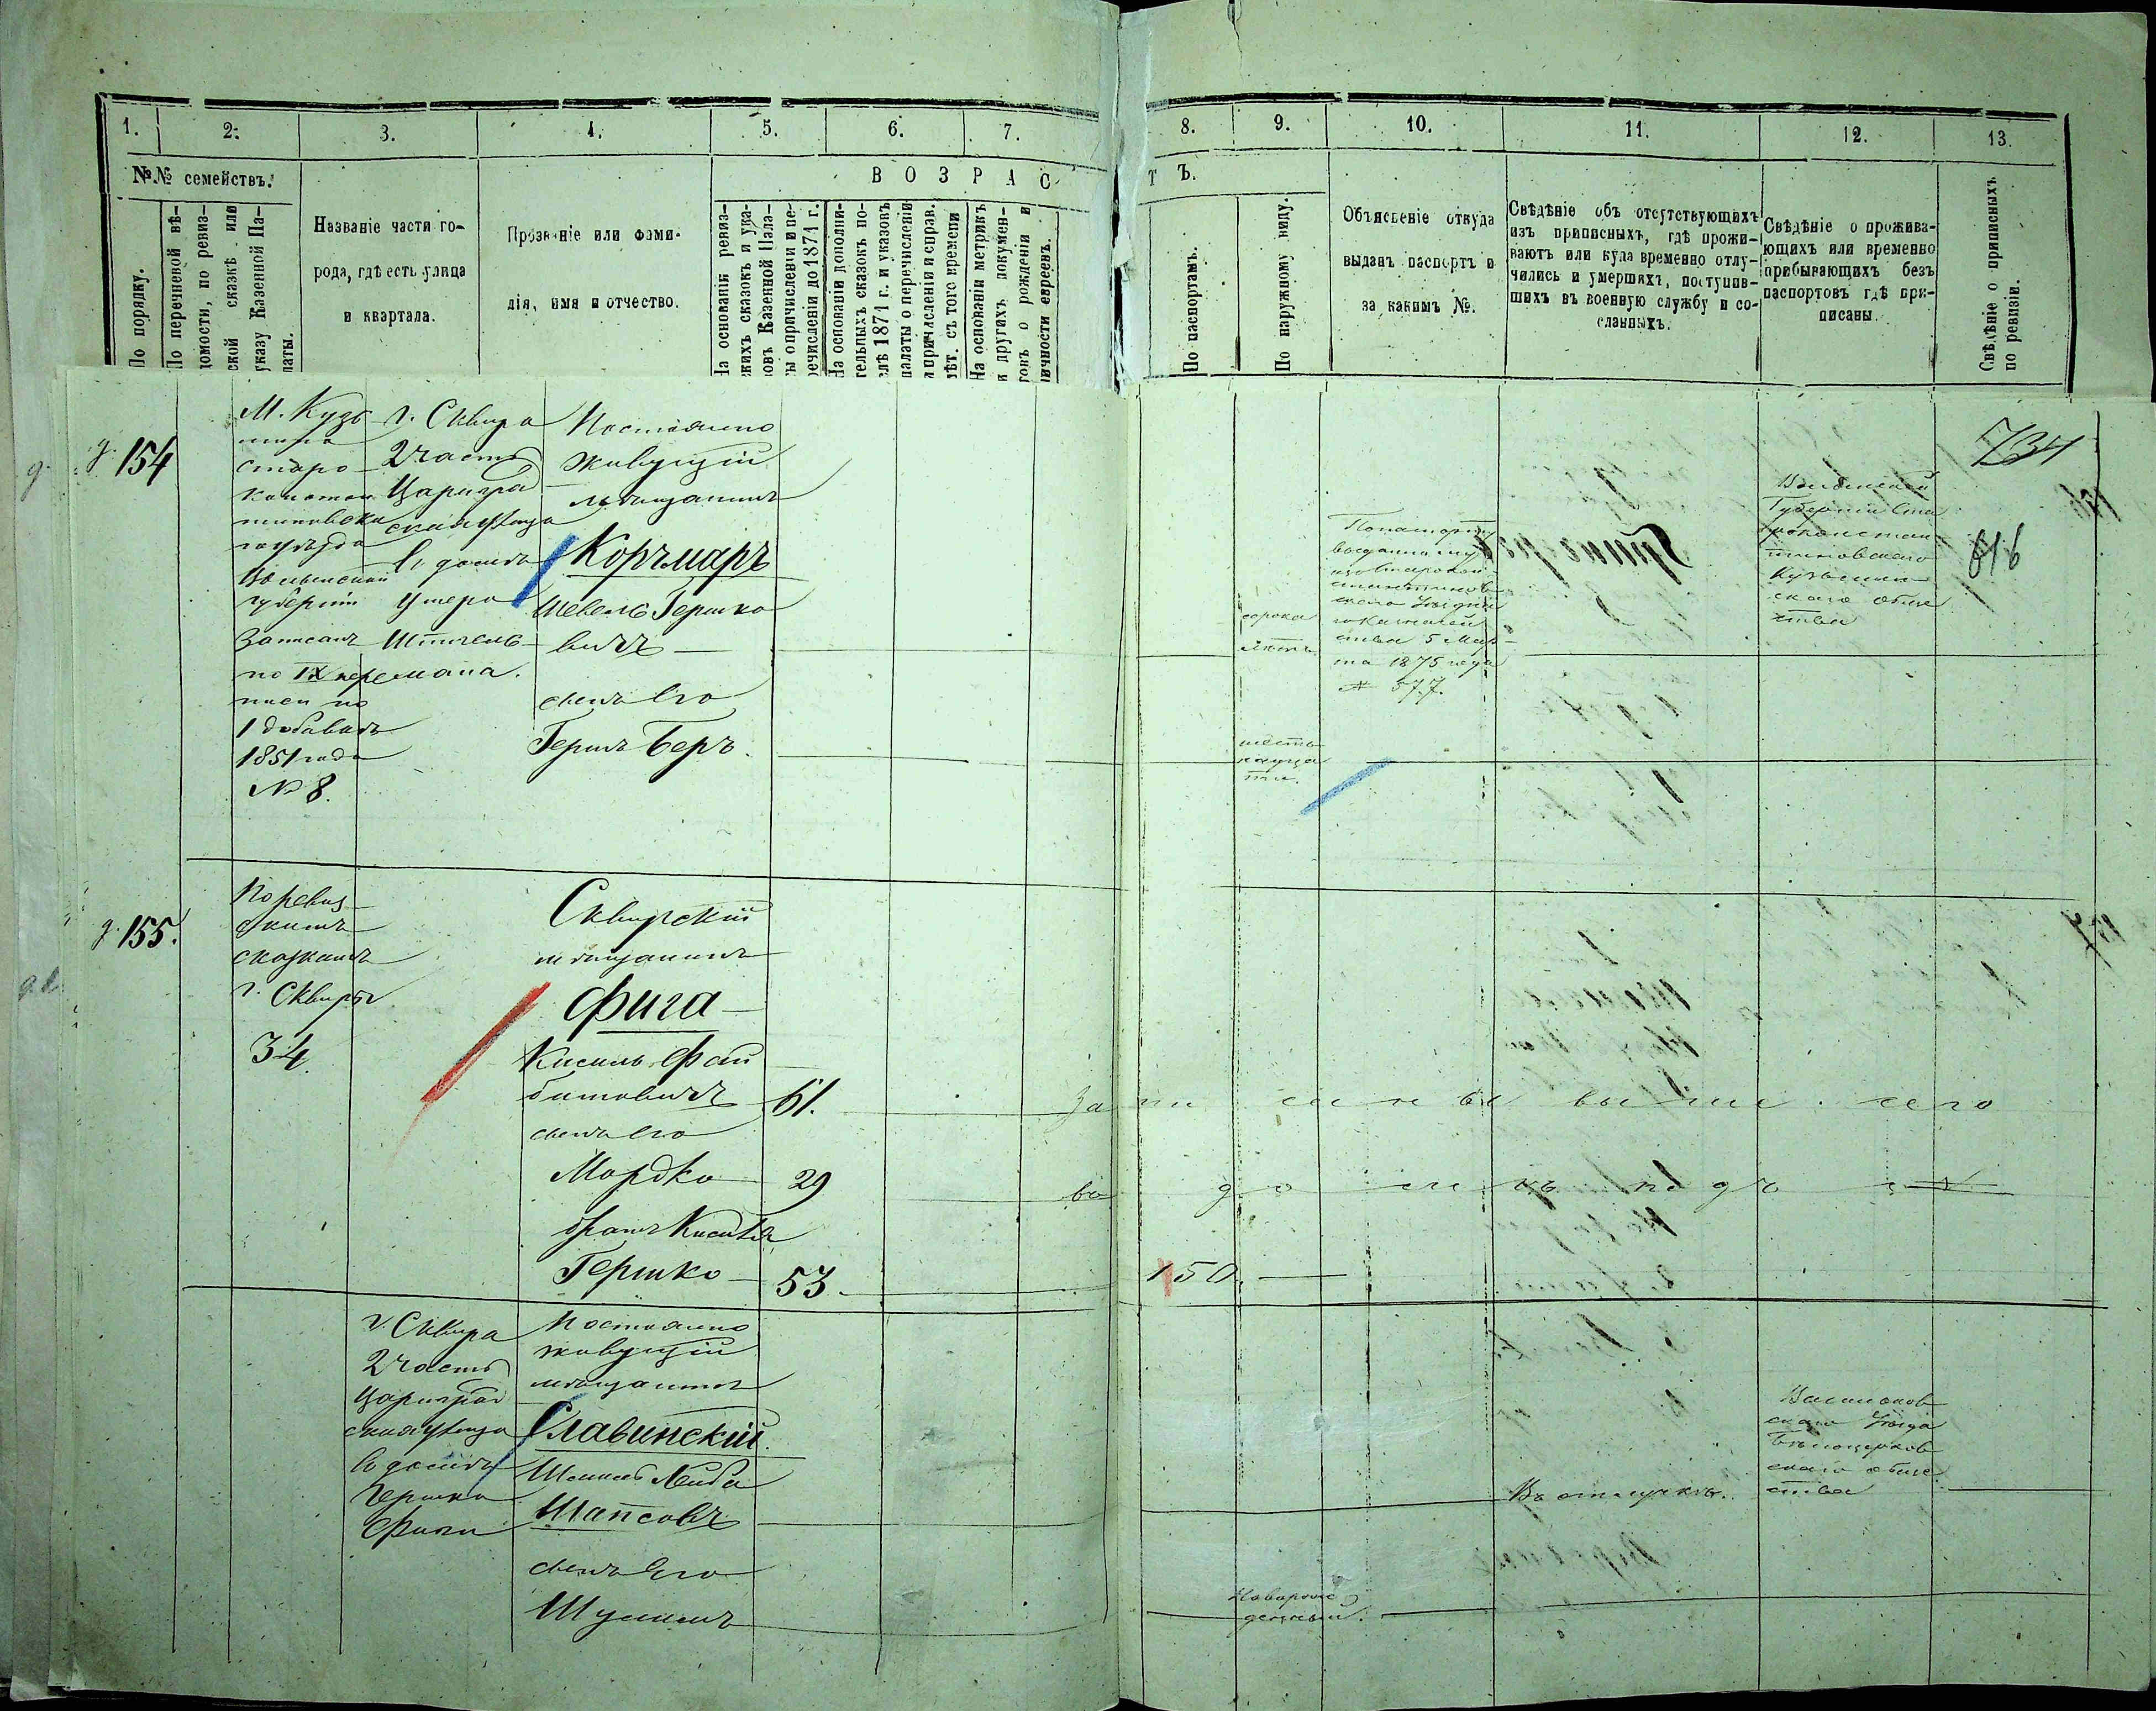 1. 2. 3. 4. 5. 6. 7. 8. 9. 10. 11. 12. 13.
№№ семействъ.
По порядку.
По перечневой вѣ-
домости, по ревиз-
ской сказкѣ или
указу Казенной Па-
латы.
Названіе части го-
рода, гдѣ есть улица
и квартала.
Прозваніе или фами-
лія, имя и отчество.
В О З Р А С Т Ъ.
На основаніи ревиз-
скихъ сказокъ и ука-
зовъ Казенной Пала-
ты о причисленіи и пе-
речисленіи до 1871 г.
На основаніи дополни-
тельныхъ сказокъ по-
слѣ 1871 г. и указовъ
палаты о перечисленіи
и причисленіи и справ.
лѣт. съ того времени
На основаніи метрикъ
и другихъ докумен-
товъ о рожденіи и
личности евреевъ.
По паспортамъ.
По наружному виду.
Объясненіе откуда
выданъ паспортъ и
за какимъ №.
Свѣдѣніе объ отсутствующихъ
изъ приписныхъ, гдѣ прожи-
ваютъ или куда временно отлу-
чились и умершихъ, поступив-
шихъ въ военную службу и со-
сланныхъ.
Свѣдѣніе о прожива-
ющихъ или временно
прибывающихъ безъ
паспортовъ гдѣ при-
писаны.
Свѣдѣніе о приписныхъ
по ревизіи.
154
М. Кузь-
мина
Старо-
констан-
тиновска
го уѣзда
Волынской
губерніи
Записанъ
по IX пере
писи по
1 добавоч
1851 года
№ 8.
г. Сквира
2 часть
Цариград
ская улица
въ домѣ
Умера
Штигель-
мана.
Постоянно
живущій
мѣщанинъ
Корчмаръ
Шевель Гершко
вичъ
сынъ его
Гершъ Беръ.
сорока
лѣтъ
шест
надца
ти.
По паспорту
выданному
изъ Старокон
стантинов
скаго Уѣздна
го казначей
ства 5 Мар-
та 1875 года
№ 577.
Волынской
Губерніи Ста
роконстан
тиновскаго
Кузьмин
скаго обще
ства
734
816
155.
По ревиз-
скимъ
сказкамъ
г. Сквиры
34
Сквирскій
мѣщанинъ
Фига
Кисиль Фай
бишовичъ 61.
сынъ его
Мордко 29
братъ Кисиля
Гершко 53.
Записаны выше сего
въ домѣ подъ №
150.
г. Сквира
2 часть
Цариград
ская улица
въ домѣ
Гершка
Фиги
Постоянно
живущій
мѣщанинъ
Славинскій
Шмиль Лейба
Шапсовъ
сынъ Его
Шулимъ
Новорож
денный.
Въ отлучкѣ.
Васильков
скаго Уѣзда
Бѣлоцерков
скаго обще
ства